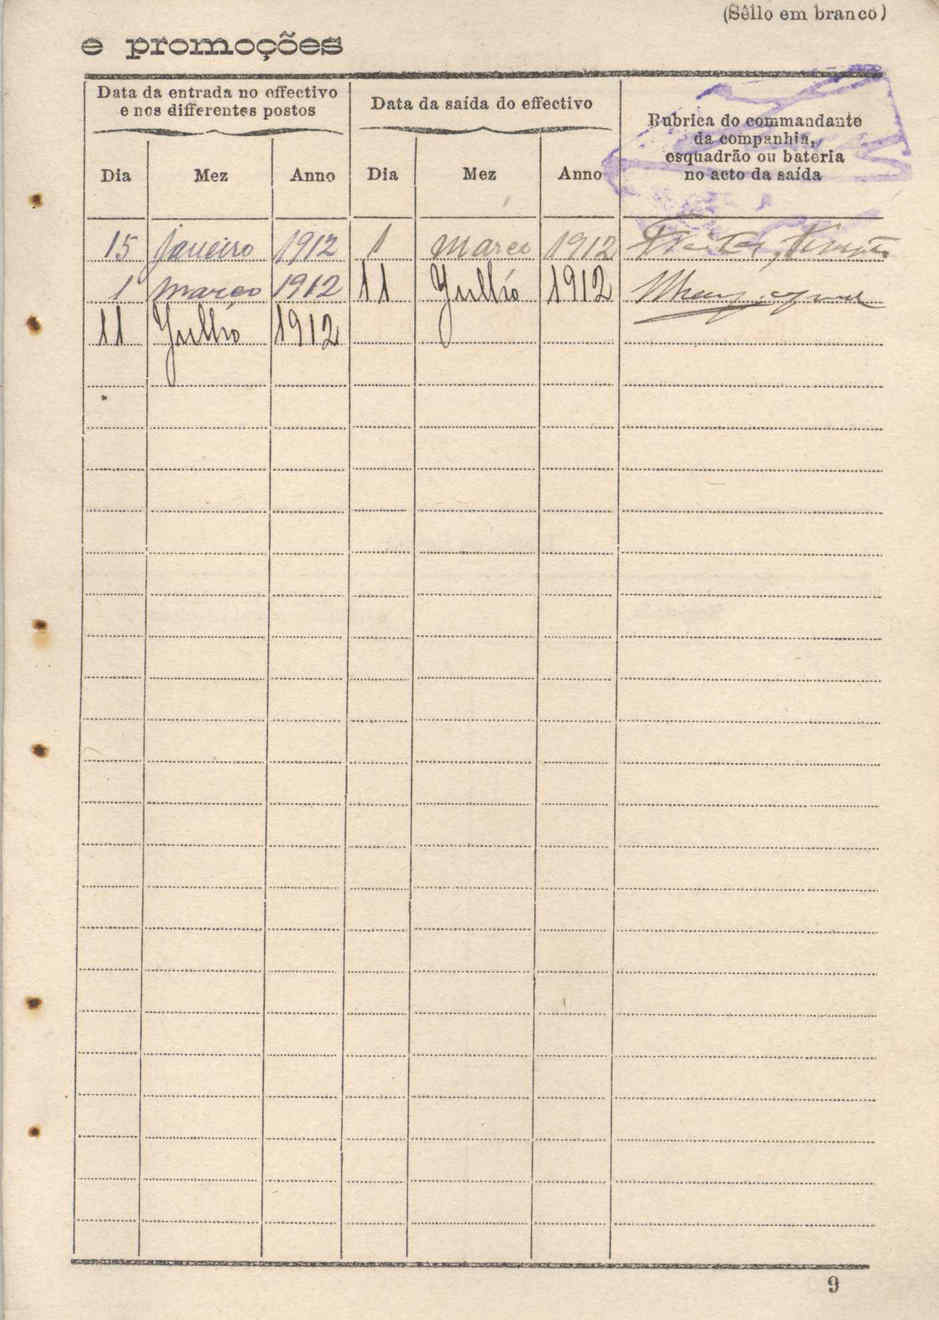 (Sêllo em branco)
e promoções
Data da entrada no effectivo
e nos differentes postos
Data da saída do effectivo
Rubrica do commandante
da companhia,
esquadrão ou bateria
no acto da saída
Dia Mez Anno Dia Mez Anno
15 janeiro 1912 1 março 1912
1 março 1912 11 Julho 1912
11 Julho 1912
9